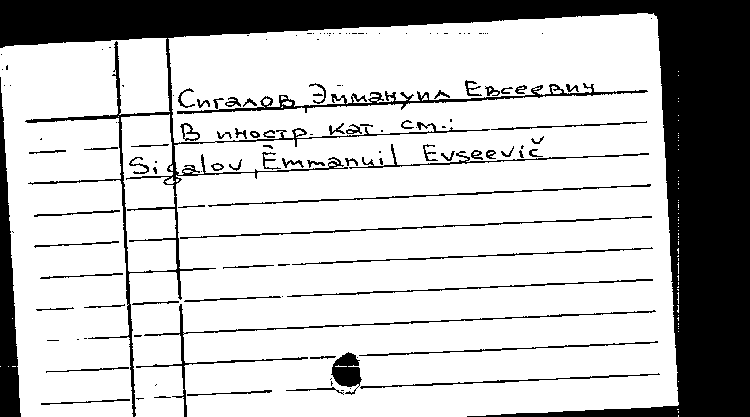 Сигалов, Эммануил Евсеевич
В иностр. кат. см.:
Sigalov, Ėmmanuil Evseevič